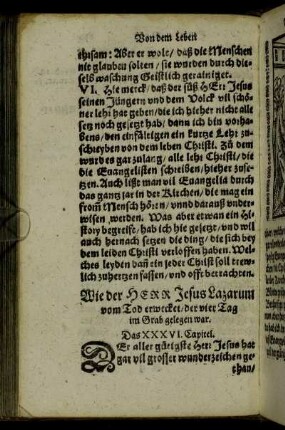 Von dem Leben
thisam: Aber er wolt/ daß die Menschen
nie glauben solten/ sie wurden durch die
sels waschung Geistlich gerainiget.
VI. Hie merck/ daß der süß HErr Jesus
seinen Jüngern vnd dem Volck vil schö-
ner lehr hat geben/die ich hieher nicht alle
setz noch gesetzt hab/ dann ich bin vorha-
bens/den einfältigen ein kurtze Lehr zu-
schreyben von dem leben Christi. Zu dem
wurd es gar zulang/ alle lehr Christi/ die
die Euangelisten schreiben/hieher zuse-
tzen. Auch lißt man vil Euangelia durch
das gantz jar in der Kirchen/ die mag ein
from Mensch hören/ vnnd darauß vnder-
wisen werden. Was aber etwan ein Hi-
story begreifft/hab ich hie gesetzt/ vnd wil
auch hernach setzen die ding/ die sich bey
dem leiden Christi verloffen haben. Wel-
ches leyden dann ein jeder Christ soll trew-
lich zuhertzen fassen/ vnd offt betrachten.
Wie der HERR Jesus Lazarum
vom Tod erwecket/ der vier Tag
im Grab gelegen war.
Das XXXVI. Capitel.
DEr aller gütigste Herr Jesus hat
gar vil grosser wunderzeichen ge-
than/